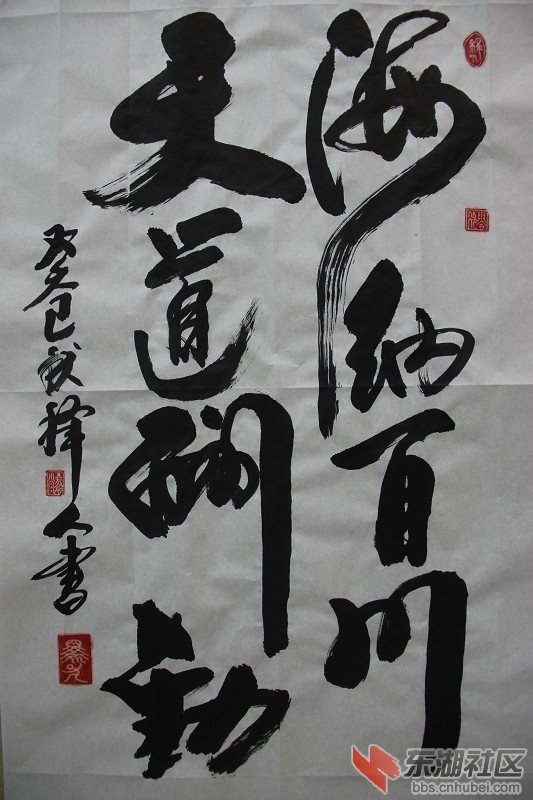 海纳百川
天道酬勤
癸巳秋释人书
东湖社区
bbs.cnhubei.com